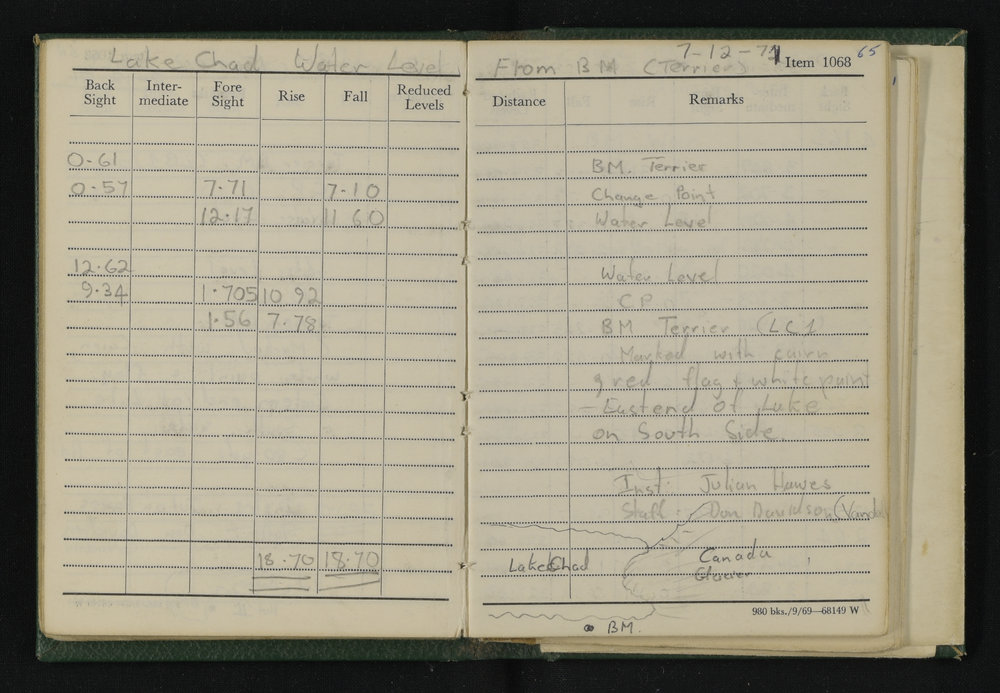 Lake Chad Water Level
Back Sight
Inter-mediate
Fore Sight
Rise
Fall
Reduced Levels
0.61
0.57 7.71 7.10
12.17 11 60
12.62
9.34 1.705 10 92
1.56 7.78
18.70 18.70
65
7-12-71 Item 1068
From BM (Terrier)
Distance
Remarks
BM. Terrier
Change Point
Water Level
Water Level
C.P.
BM Terrier (LC1)
Marked with cairn
red flag & white paint
- East end of Lake
on South Side.
Inst: Julian Hawes
Staff: Don Danidson (Vanda
Lake Chad
Canada
Glacier
980 bks./9/69—68149 W
BM.